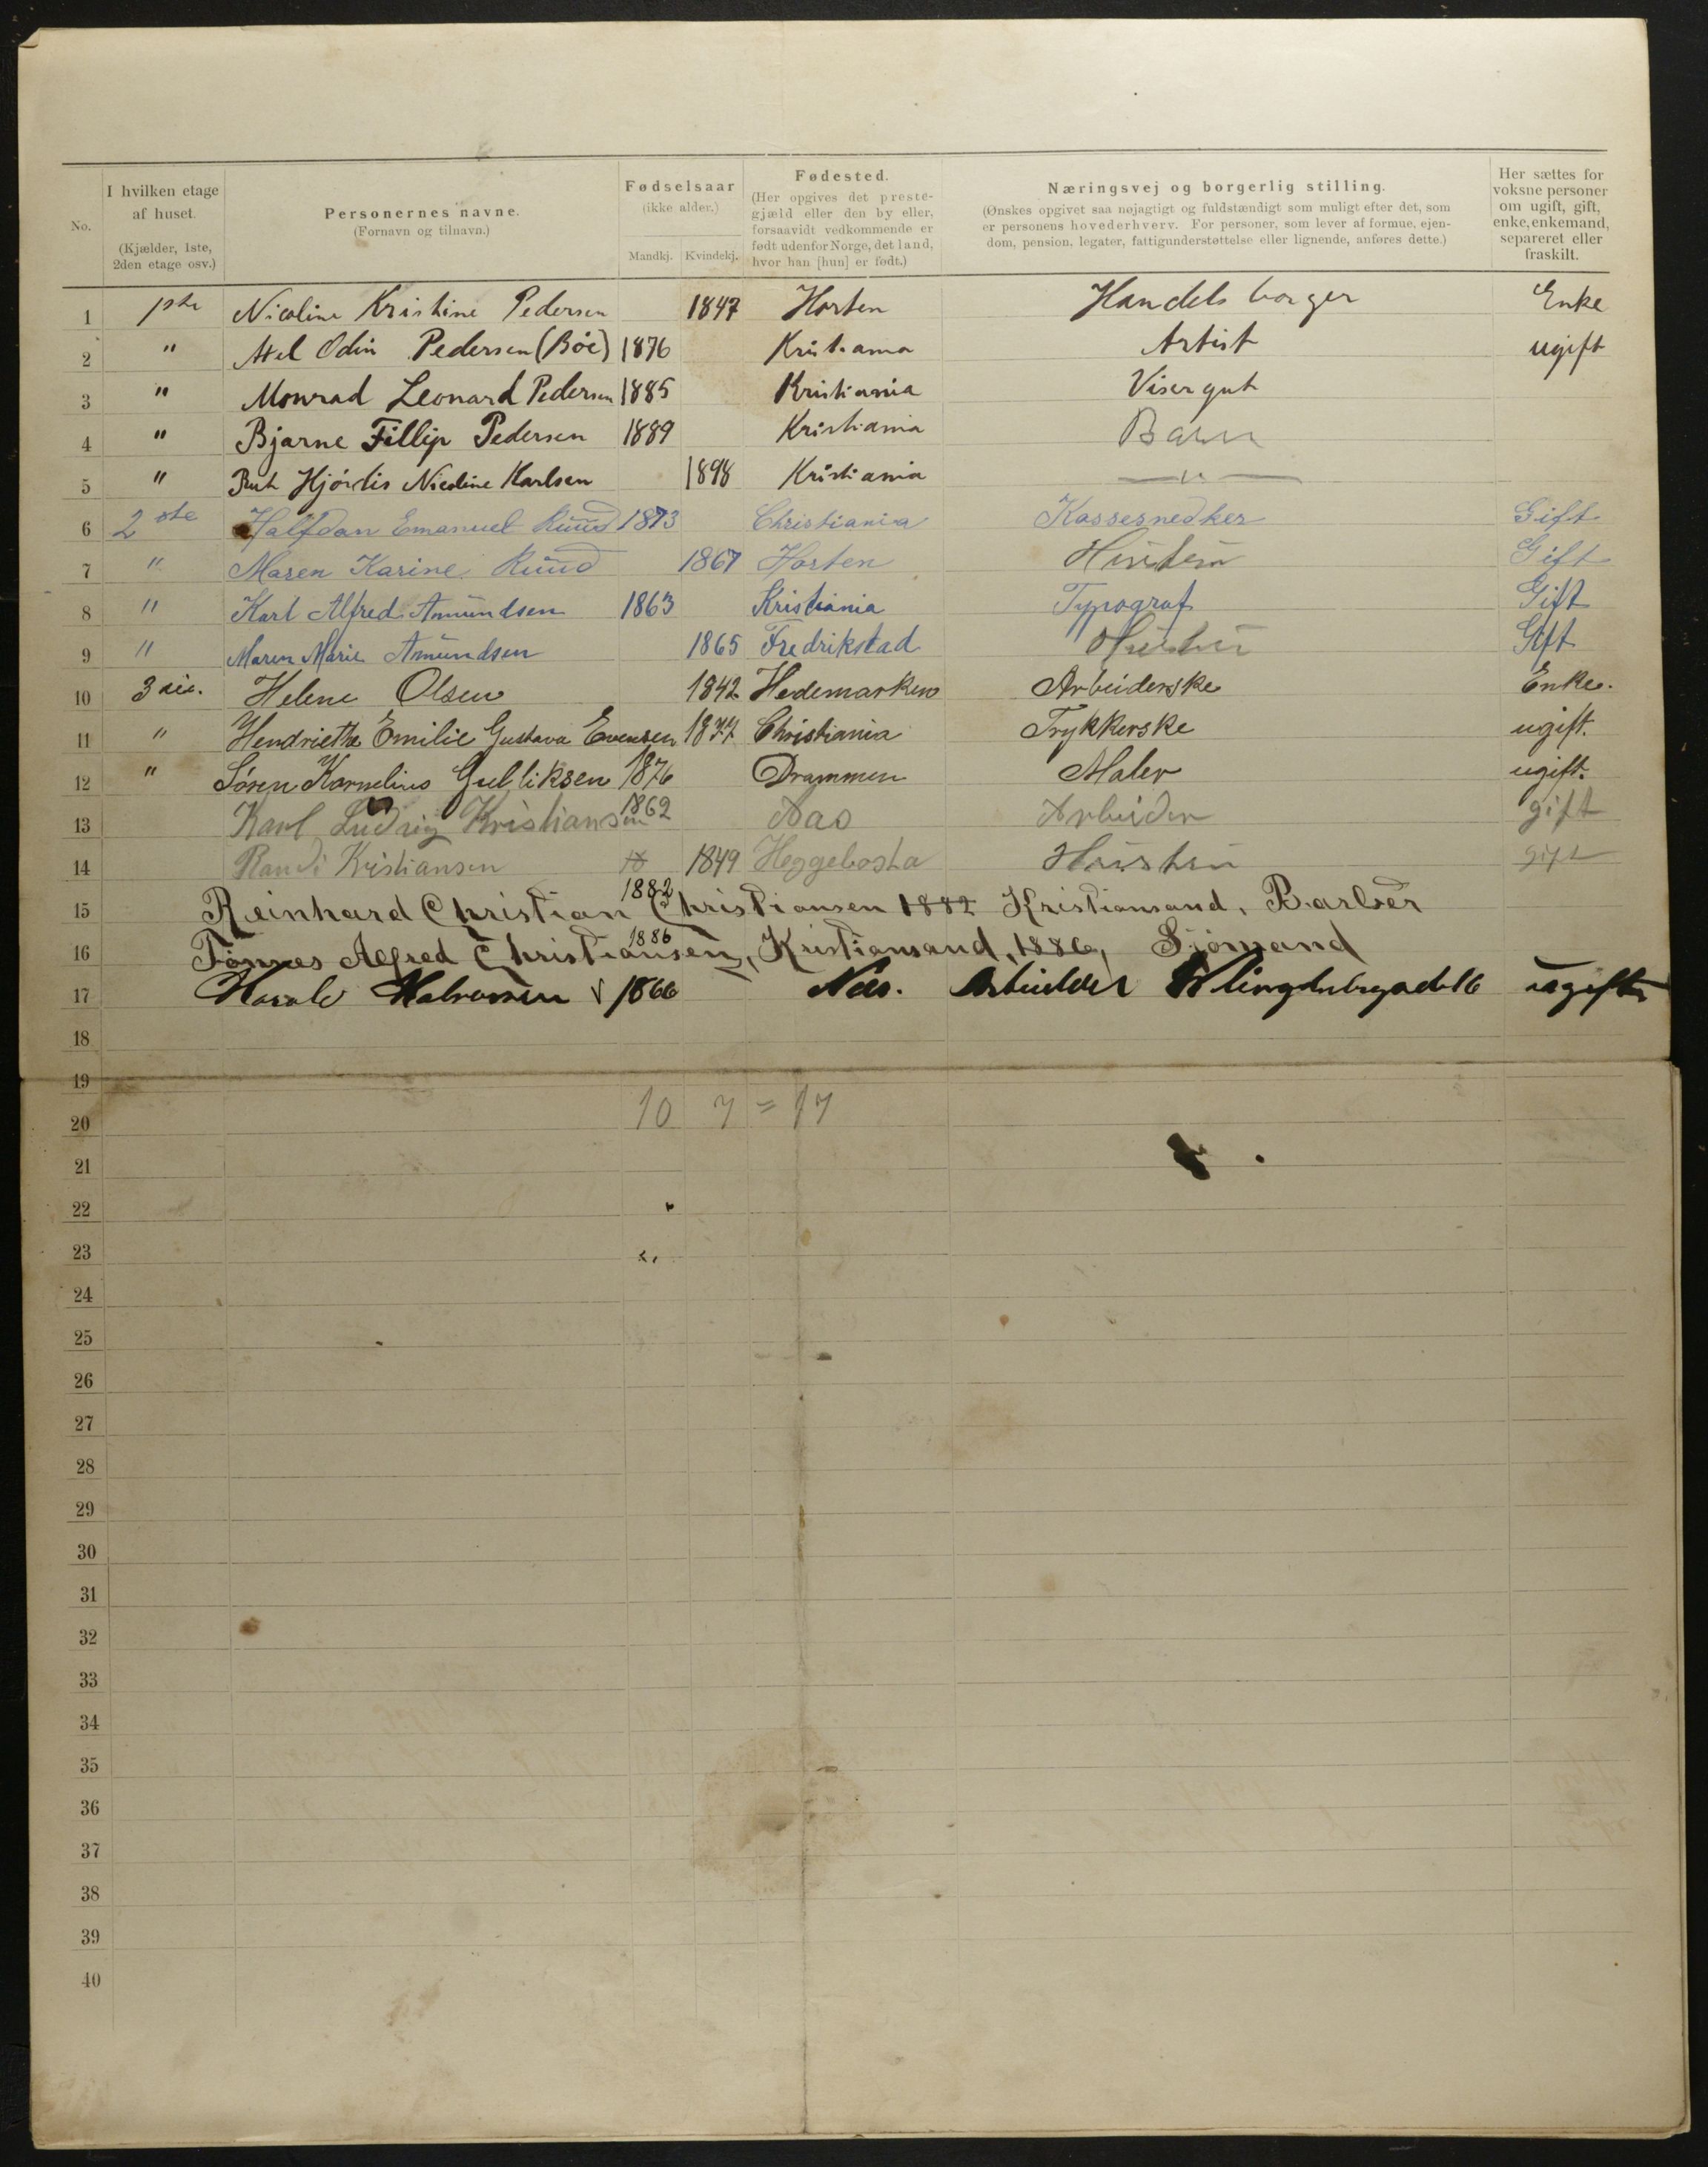 No. | I hvilken etage af huset. (Kjælder, 1ste, 2den etage osv.) | Personernes navne. (Fornavn og tilnavn.) | Fødselsaar (ikke alder.) Mandkj. Kvindekj. | Fødested. (Her opgives det prestegjæld eller den by eller, forsaavidt vedkommende er født udenfor Norge, det land, hvor han [hun] er født.) | Næringsvej og borgerlig stilling. (Ønskes opgivet saa nøjagtigt og fuldstændigt som muligt efter det, som er personens hovederhverv. For personer, som lever af formue, ejendom, pension, legater, fattigunderstøttelse eller lignende, anføres dette.) | Her sættes for voksne personer om ugift, gift, enke, enkemand, separeret eller fraskilt.
1 1ste Nicoline Kristine Pedersen 1847 Horten Handelsborger Enke
2 " Axel Odin Pedersen (Böe) 1876 Kristiania Artist ugift
3 " Monrad Leonard Pedersen 1885 Kristiania Visergut
4 " Bjarne Fillip Pedersen 1889 Kristiania Barn
5 " Rut Hjórdis Nicoline Karlsen 1898 Kristiania — " —
6 2 ste Halfdan Emanuel Ruud 1873 Christiania Kassesnedker Gift
7 " Maren Karine Ruud 1867 Horten Hustru Gift
8 " Karl Alfred Amundsen 1863 Kristiania Typograf Gift
9 " Maren Marie Amundsen 1865 Fredrikstad Hustru Gift
10 3die. Helene Olsen 1842 Hedemarken Arbeiderske Enke.
11 " Hendriette Emilie Gustava Evensen 1877 Christiania Trykkerske ugift.
12 " Sören Kornelius Gulliksen 1876 Drammen Maler ugift.
13 Karl Ludvig Kristiansen 1862 Aas Arbeider gift
14 Randi Kristiansen 18 1849 Heggebosta Hustru gift
15 Reinhard Christian Christiansen 1882 1882 Kristiansand, Barber
16 Tönnes Alfred Christiansen, 1886 Kristiansand, 1886, Sjömand
17 Harald Halvorsen 1866 Nes. Arbeider Klingenberggade 16 ugift
18
19
20 10 7 = 17
21
22
23
24
25
26
27
28
29
30
31
32
33
34
35
36
37
38
39
40